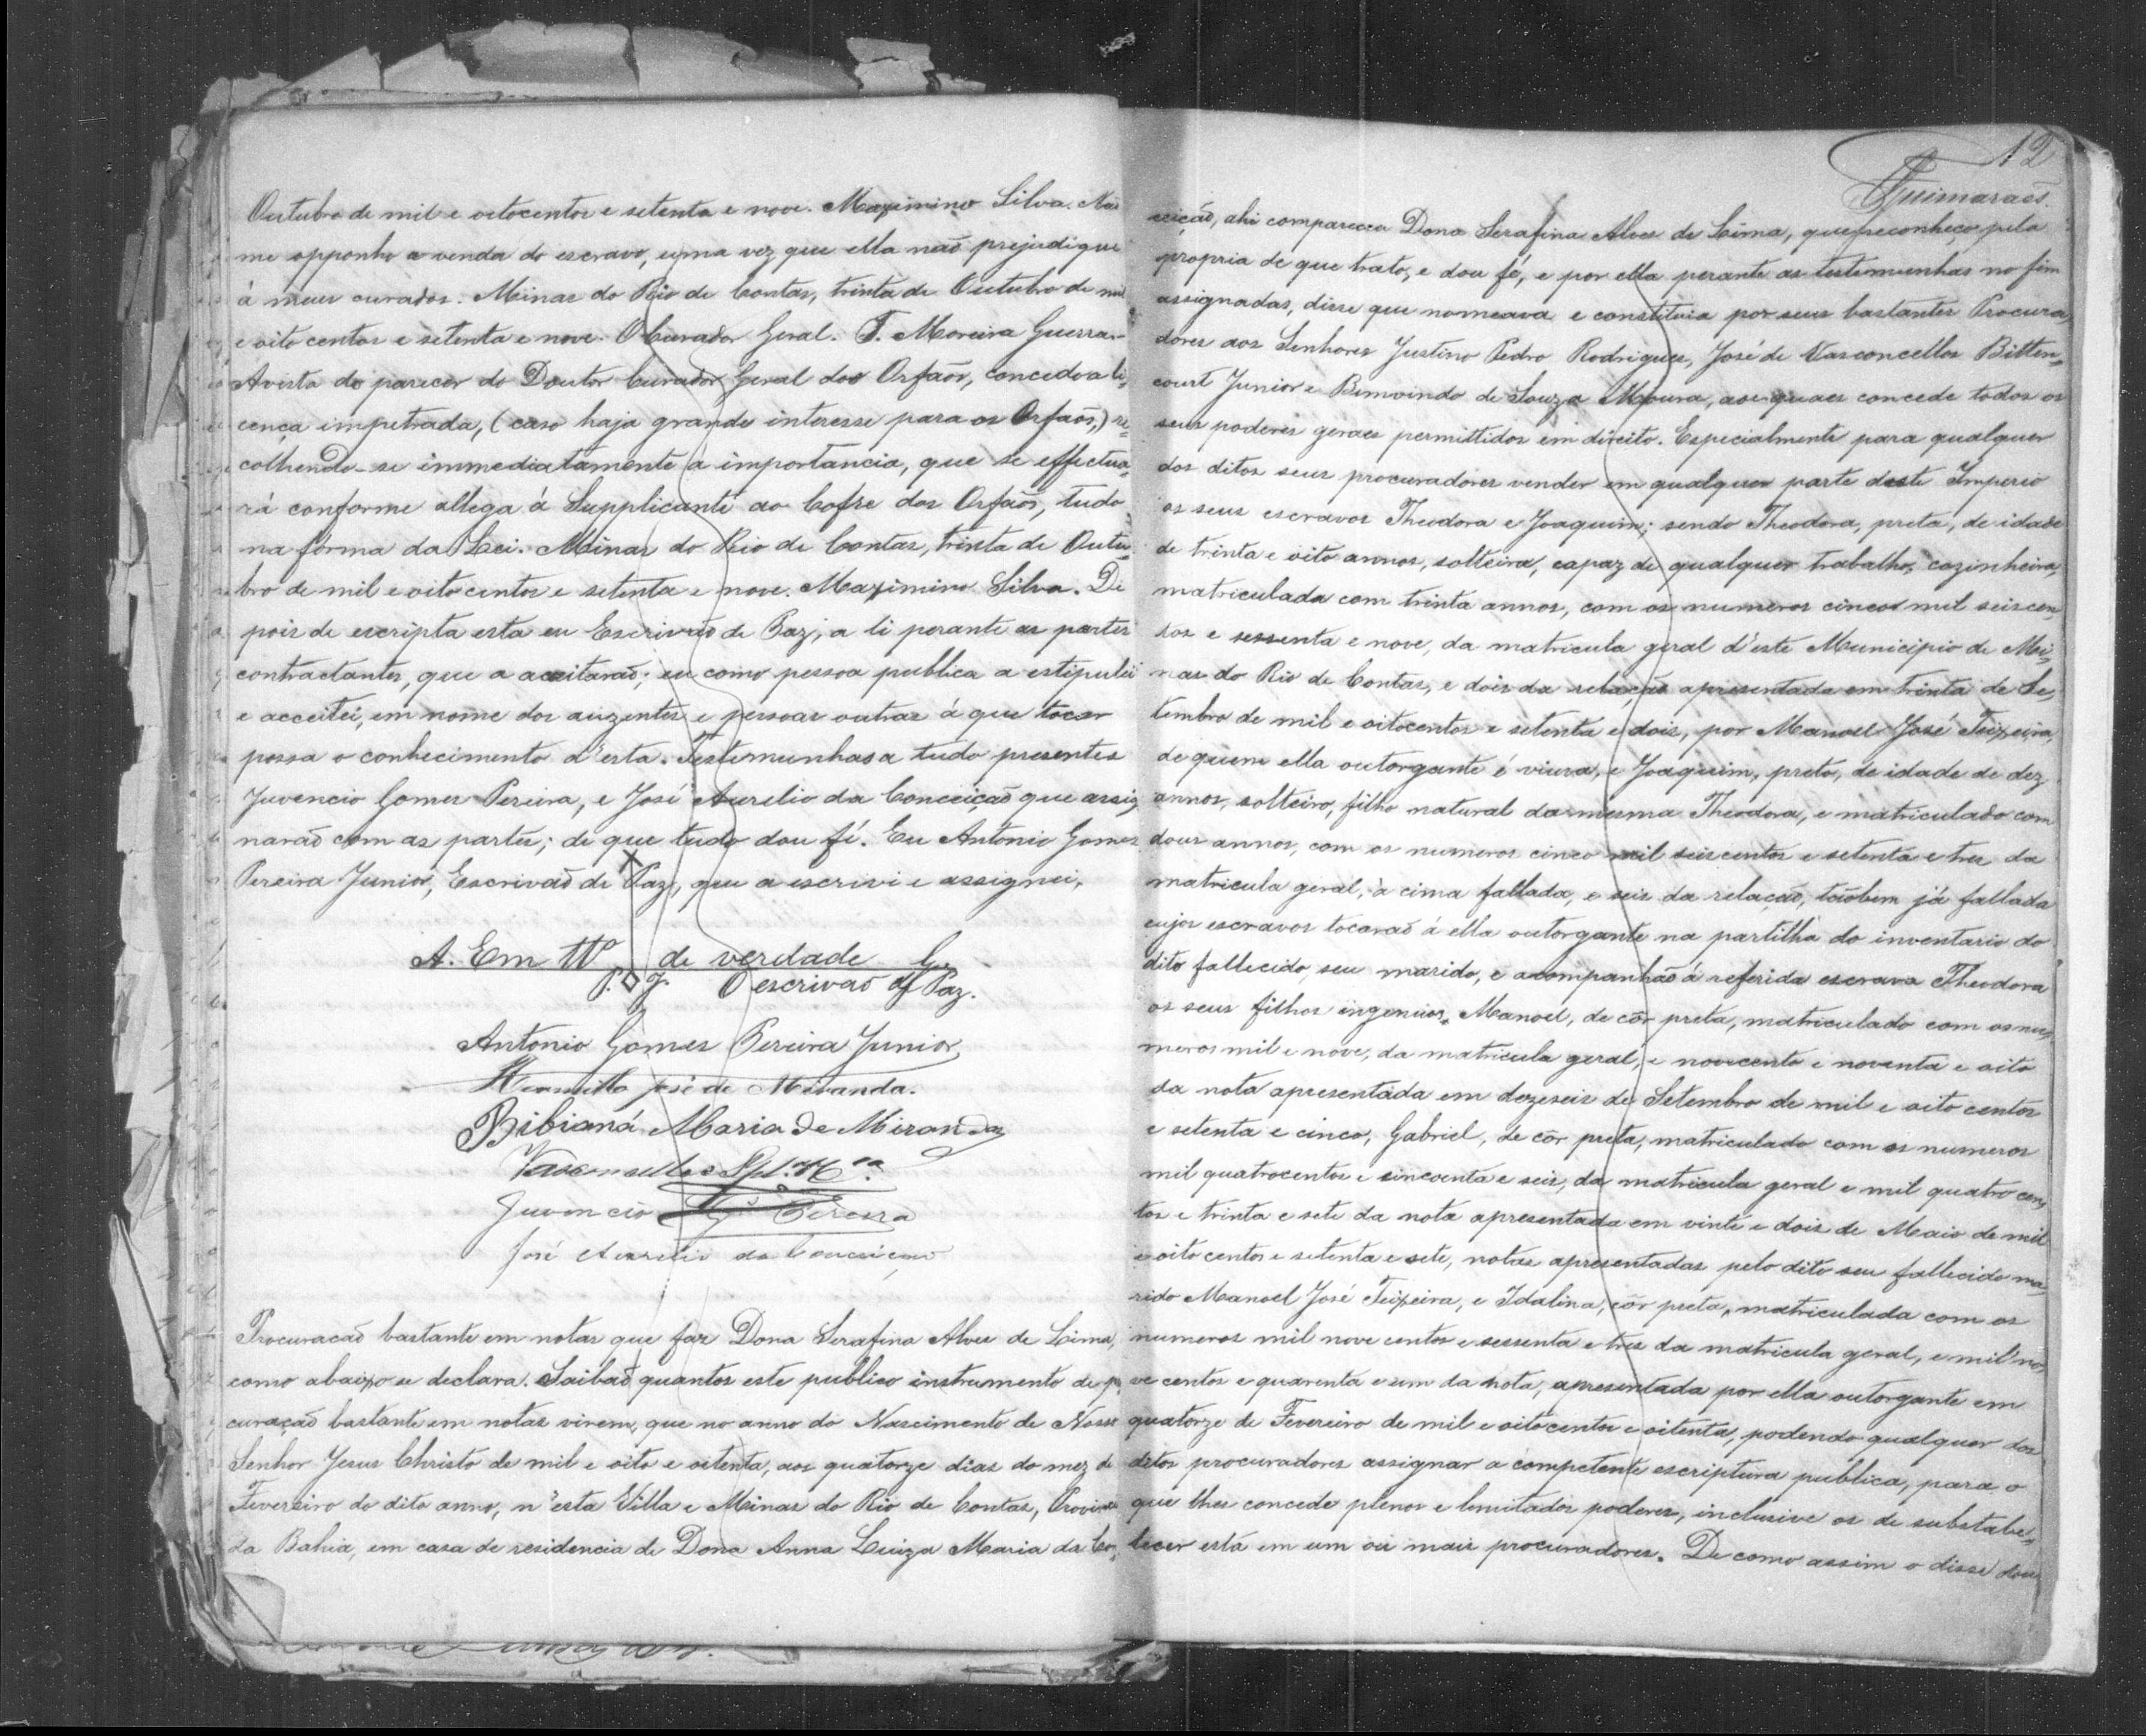 Outubro de mil e oitocentos e setenta e nove. Maximino Silva. Não
me opponho a venda do escravo, uma vez que ella não prejudique
à meus curados. Minas do Rio de Contas, trinta de Outubro de mil
e oito centos e setenta e nove. O Curador Geral. F. Moreira Guerra.
Avista do parecer do Doutor Curador Geral dos Orfaõs, concedo a li,
cença impetrada, (caso haja grande interesse para os Orfaõs,) re,
colhendo-se immediatamente a importancia, que se effectua,
rá conforme allega á Supplicante ao Cofre dos Orfaõs, tudo
na fórma da Lei. Minas do Rio de Contas, trinta de Outu,
bro de mil e oito centos e setenta e nove. Maximino Silva. De
pois de escripta esta eu Escrivaõ de Paz, a li perante as partes
contractantes, que a aceitaraõ; eu como pessoa publica a estipulei
e acceitei, em nome dos auzentes e pessoas outras á que tocar
possa o conhecimento d'esta. Testemunhas a tudo presentes
Juvencio Gomes Pereira, e José Aurelio da Conceiçaõ que assig,
naraõ com as partes; de que tudo dou fé. Eu Antonio Gomes
Pereira Junior, Escrivaõ de Paz, que a escrivi e assignei.
A. Em tto de verdade G.
P. J. O escrivaõ de Paz.
Antonio Gomes Pereira Junior
José de Miranda.
Bibianá Maria de Miranda
Juvencio Gs Pereira
José Aurelio da Conceiçaõ
Procuracaõ bastante em notas que faz Dona Serafina Alves de Lima,
como abaixo se declara. Saibaõ quantos este publico instrumento de p,
curaçaõ bastante em notas virem, que no anno do Nascimento de Nosso
Senhor Jesus Christo de mil e oito e oitenta, aos quatorze dias do mez de
Fevereiro do dito anno, n'esta Villa e Minas do Rio de Contas, Provincia
da Bahia, em casa de residencia de Dona Anna Luiza Maria da Co,
12
Guimaraẽs.
ceiçaõ, ahi compareceu Dona Serafina Alves de Lima, que reconheço pela
propria de que trato, e dou fé, e por ella perante as testemunhas no fim
assignadas, disse que nomeava e constituia por seus bastantes Procura,
dores aos Senhores Justino Pedro Rodrigues, José de Vasconcellos Bitten,
court Junior e Bemvindo de Souza Moura, aos quaes concede todos os
seus poderes geraes permittidos em direito. Especialmente para qualquer
dos ditos seus procuradores vender em qualquer parte deste Imperio
os seus escravos Theodora e Joaquim; sendo Theodora, preta, de idade
de trinta e oito annos, solteira, capaz de qualquer trabalho, cozinheira,
matriculada com trinta annos, com os numeros cinco mil seiscen,
tos e sessenta e nove, da matricula geral d'este Municipio de Mi,
nas do Rio de Contas, e dois da relaçaõ apresentada em trinta de Se,
tembro de mil e oitocentos e setenta e dois, por Manoel José Teixeira,
de quem ella outorgante é viuva, e Joaquim, preto, de idade de dez
annos, solteiro, filho natural da mesma Theodora, e matriculado com
dous annos, com os numeros cinco mil seiscentos e setenta e tres da
matricula geral, à cima fallada, e seis da relaçaõ, taõbem já fallada
cujos escravos tocaraõ á ella outorgante na partilha do inventario do
dito fallecido, seu marido, e acompanhaõ á referida escrava Theodora
os seus filhos ingenuos, Manoel, de côr preta, matriculado com os nu,
meros mil e nove, da matricula geral, e novecento e noventa e oito
da nota apresentada em dezeseis de Setembro de mil e oito centos
e setenta e cinco, Gabriel, de côr preta, matriculado com os numeros
mil quatrocentos e sincoenta e seis, da matricula geral e mil quatro cen,
tos e trinta e sete da nota apresentada em vinte e dois de Maio de mil
e oito centos e setenta e sete, notas apresentadas pelo dito seu fallecido ma,
rido Manoel José Teixeira, e Idalina, côr preta, matriculada com os
numeros mil nove centos e sessenta e tres da matricula geral, e mil no,
ve centos e quarenta e um da nota, apresentada por ella outorgante em
quatorze de Fevereiro de mil e oitocentos e oitenta, podendo qualquer dos
ditos procuradores assignar a competente escriptura publica, para o
que lhes concede plenos e limitados poderes, inclusive os de substabe,
lecer está em um ou mais procuradores. De como assim o disse dou